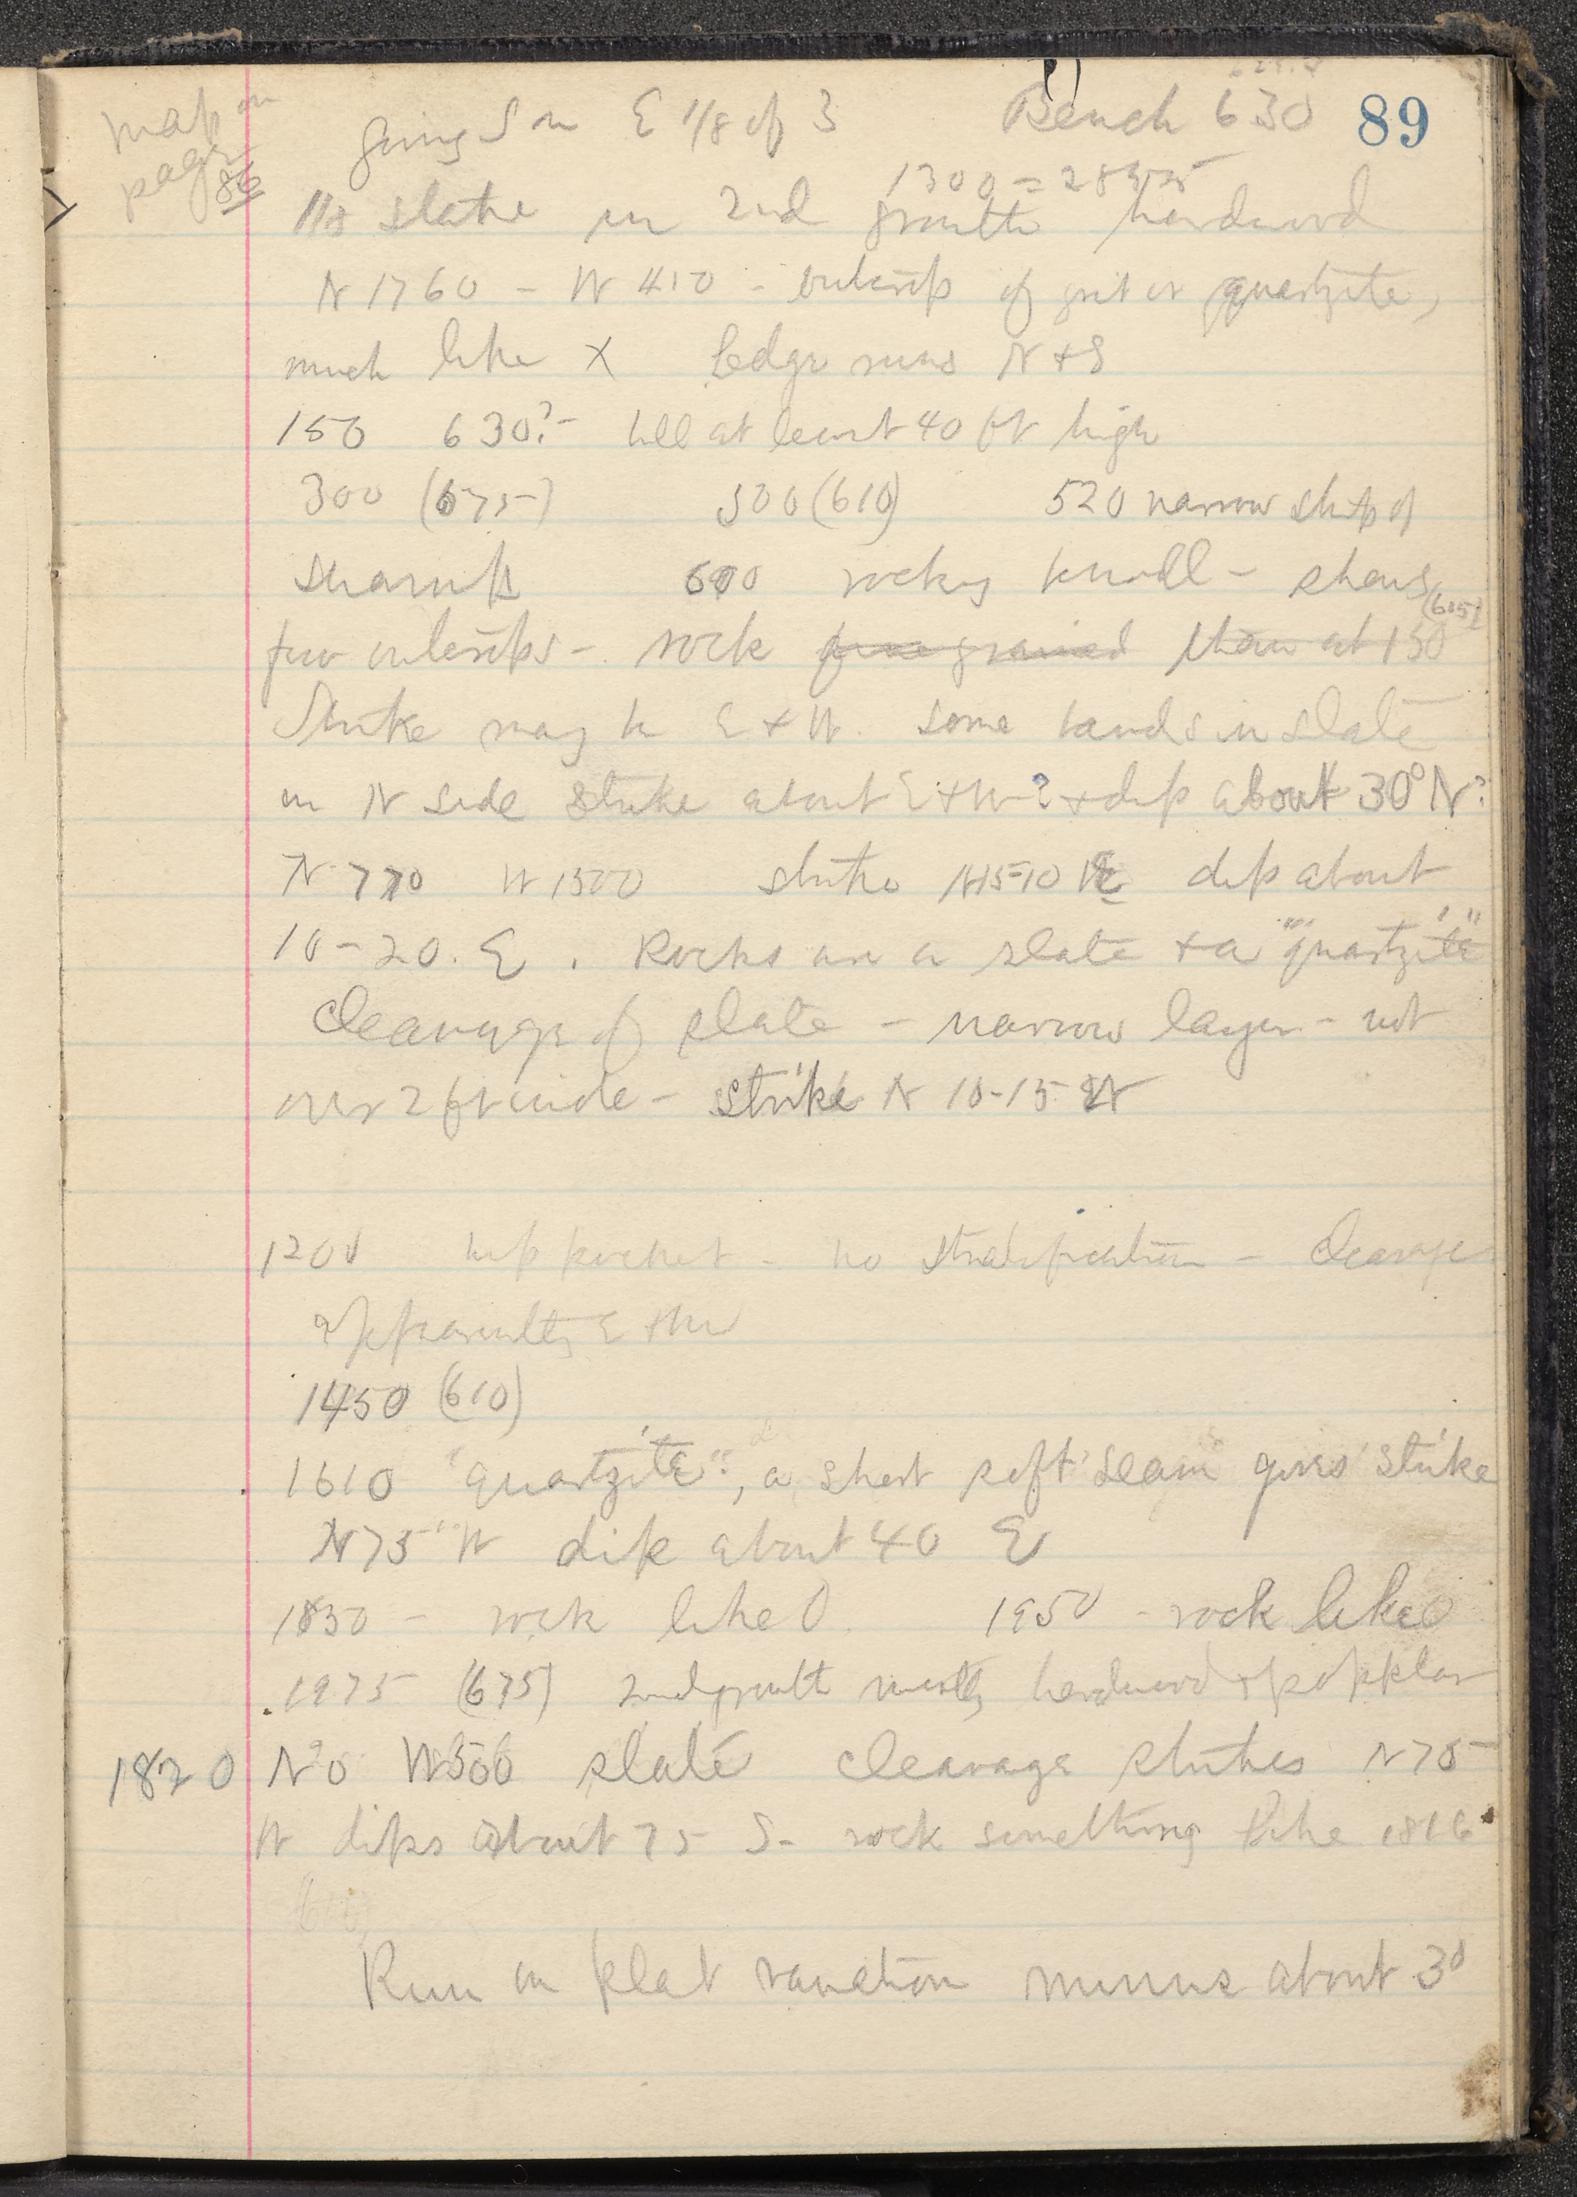 map on
page
86
Going S on E 1/8 of 3 Bench 630 89
1300 = 28
slate in 2nd growth hardwood
N 1760 - W 410 - outcrop of grit or quartzite,
much like X Ledge runs N + S
150 630? - hill at least 40 ft high
300 (675) 500 (610) 520 narrow strip of
swamp 600 rocky knoll - shows
(615)
few outcrops - rock fine grained than at 150
Strike may be E + W. Some bands in slate
on N side strike about E + W ? + dip about 30° N?
N 770 W 1500 strike N 5-10 E dip about
10-20. E. Rocks are a slate + a "quartzite"
Cleavage of slate - narrow layer - not
over 2 ft wide - strike N 10-15 W
1200 no stratification - Cleavage
apparently E + W
1450 (610)
1610 "quartzite", a short soft seam gives strike
N 75 W dip about 40 E
1830 - rock like 0 1950 - rock like 0
1975 (675) 2nd growth mostly hardwood + popplar
1820 N 0 W 500 slate cleavage strikes N 75
W dips about 75 S - rock something like 1816
Run on flat variation minus about 3°